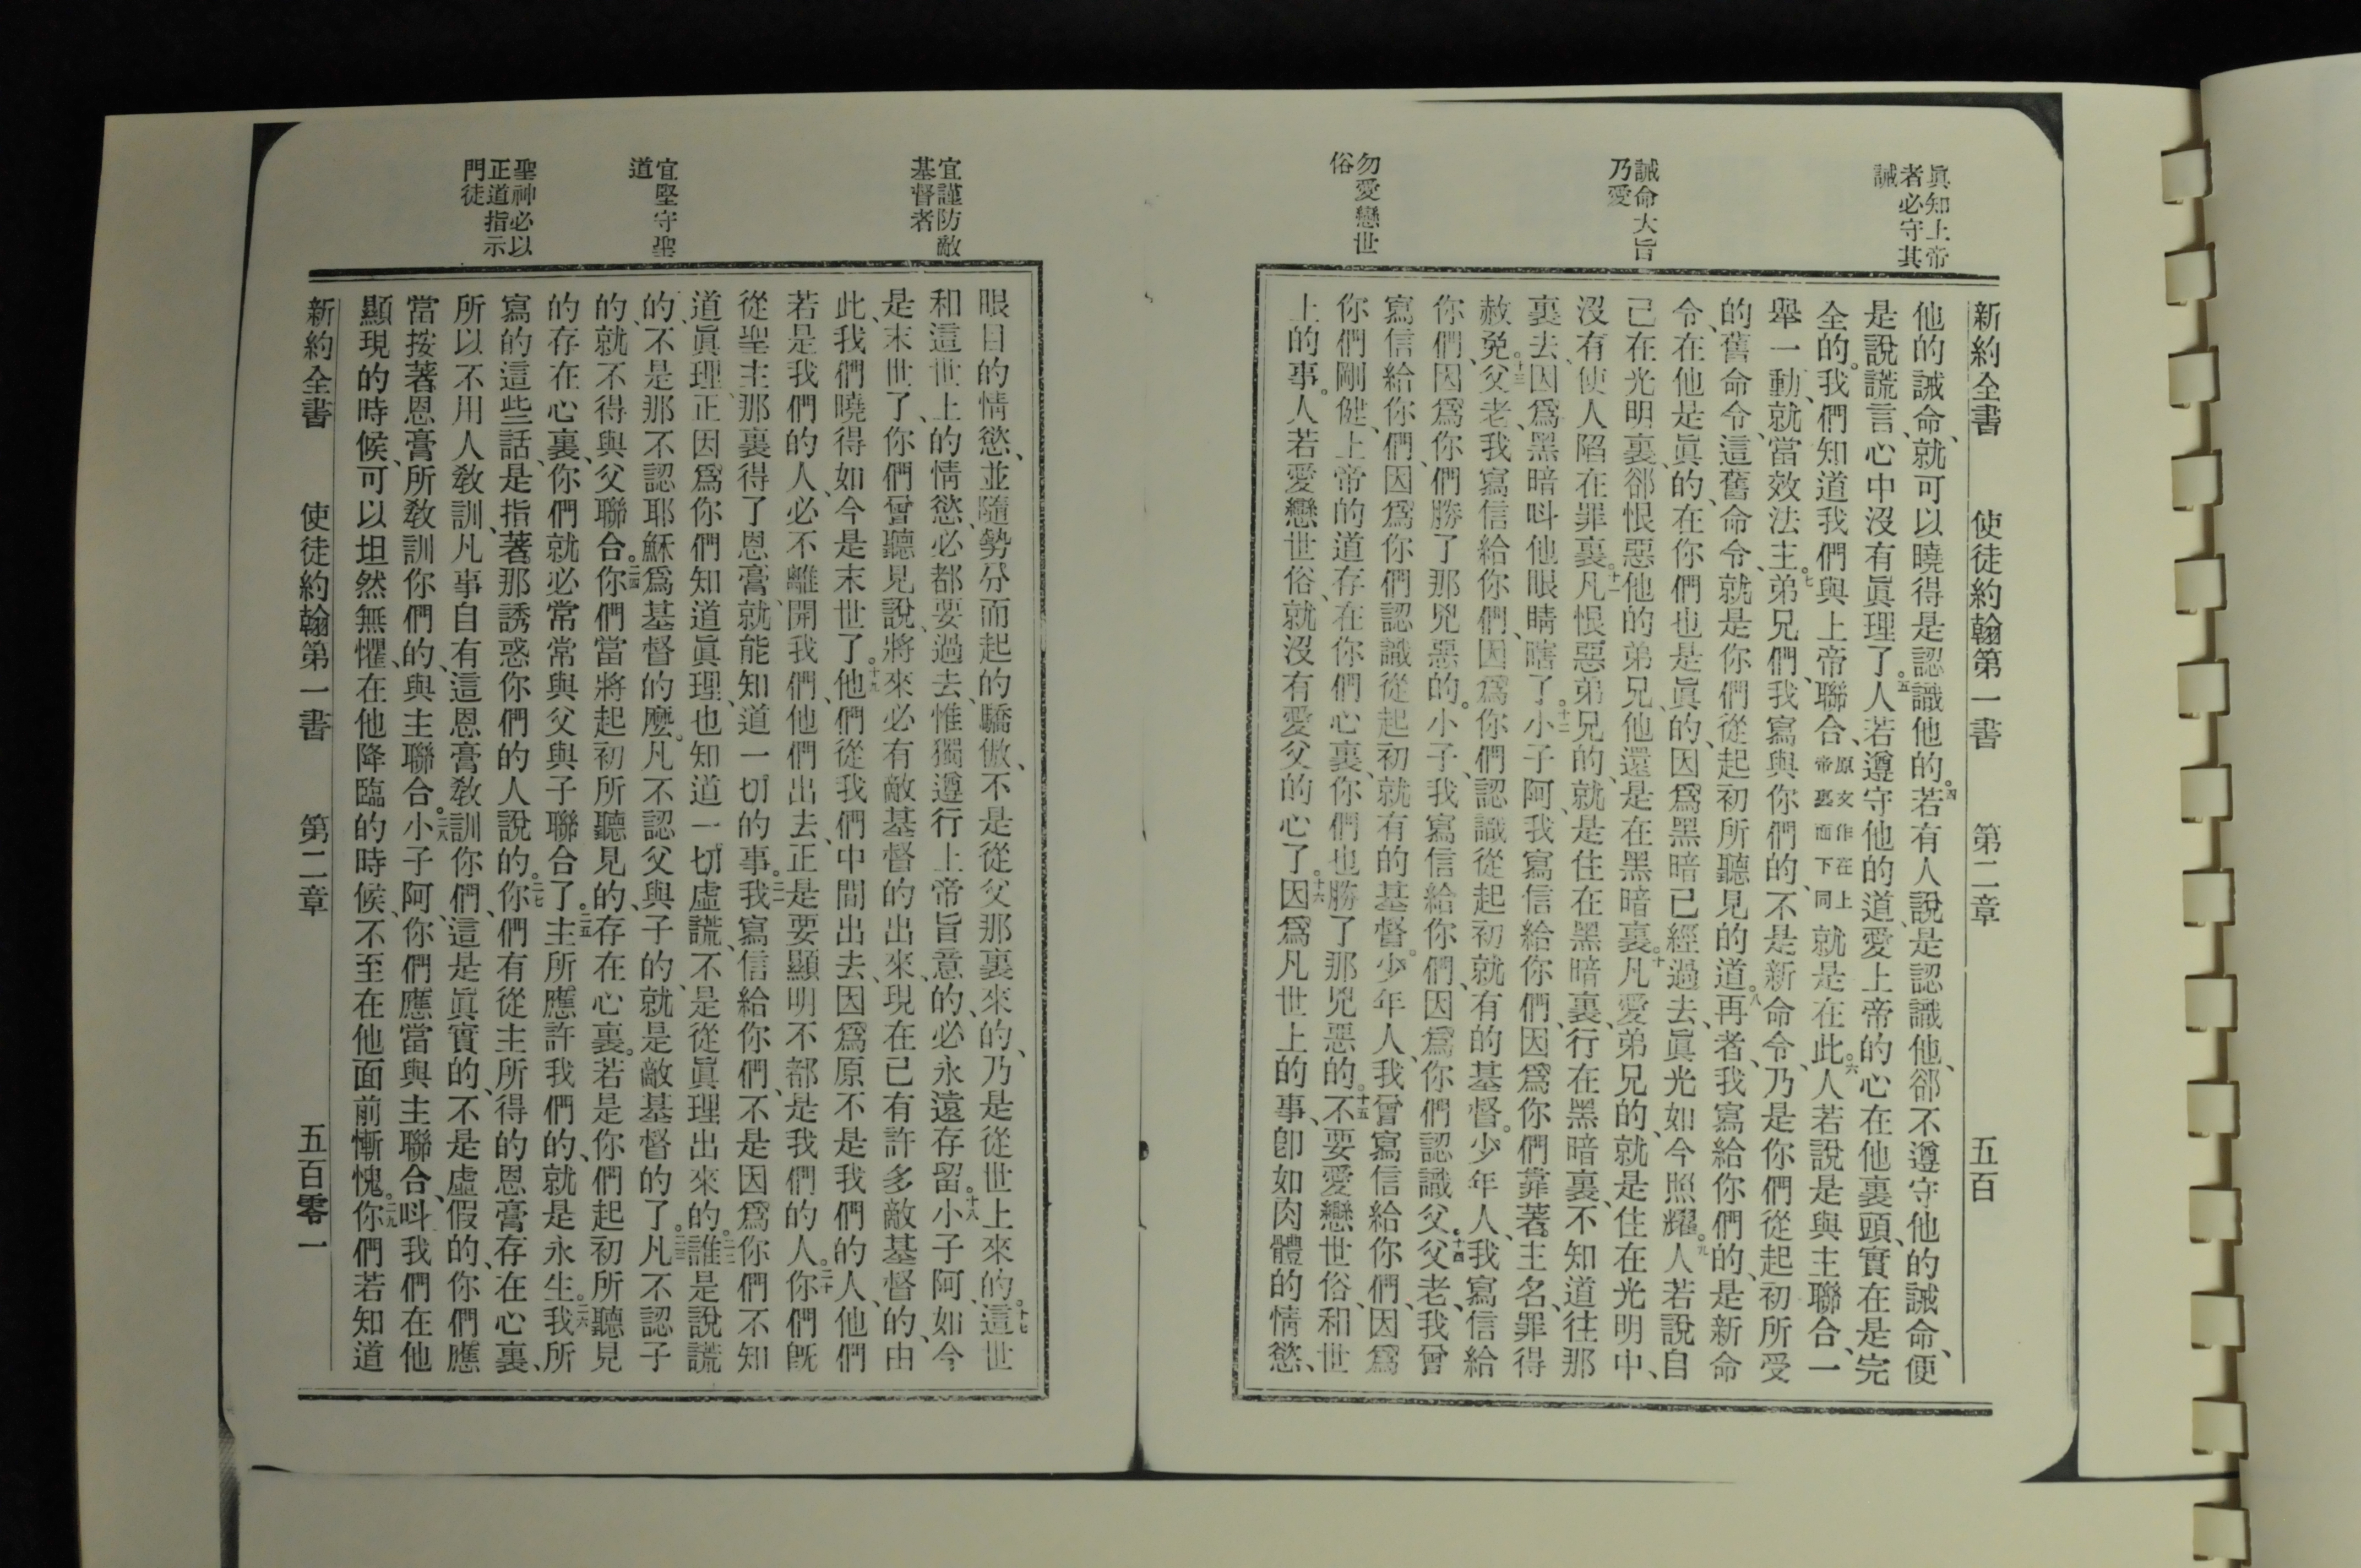 眞知上帝
者必守其
誡
誡命大旨
乃愛
勿愛戀世
俗
新約全書　使徒約翰第一書　第二章　五百
他的誡命、就可以曉得是認識他的。四若有人說、是認識他、郤不遵守他的誡命、便
是說謊言、心中沒有眞理了。五人若遵守他的道、愛上帝的心在他裏頭、實在是完
全的。我們知道我們與上帝聯合、原文作在上帝裏面下同就是在此。六人若說是與主聯合、一
舉一動、就當效法主。七弟兄們、我寫與你們的、不是新命令、乃是你們從起初所受
的舊命令、這舊命令、就是你們從起初所聽見的道。八再者、我寫給你們的、是新命
令、在他是眞的、在你們也是眞的、因爲黑暗已經過去、眞光如今照耀。九人若說自
己在光明裏、郤恨惡他的弟兄、他還是在黑暗裏。十凡愛弟兄的、就是住在光明中、
沒有使人陷在罪裏。十一凡恨惡弟兄的、就是住在黑暗裏、行在黑暗裏、不知道往那
裏去、因爲黑暗呌他眼睛瞎了。十二小子阿、我寫信給你們、因爲你們靠著主名、罪得
赦免。十三父老、我寫信給你們、因爲你們認識從起初就有的基督。少年人、我寫信給
你們、因爲你們勝了那兇惡的。小子、我寫信給你們、因爲你們認識父。十四父老、我曾
寫信給你們、因爲你們認識從起初就有的基督。少年人、我曾寫信給你們、因爲
你們剛健、上帝的道存在你們心裏、你們也勝了那兇惡的。十五不要愛戀世俗、和世
上的事。人若愛戀世俗、就沒有愛父的心了。十六因爲凡世上的事、卽如肉體的情慾、
宜謹防敵
基督者
宜堅守聖
道
聖神必以
正道指示
門徒
眼目的情慾、並隨勢分而起的驕傲、不是從父那裏來的、乃是從世上來的。十七這世
和這世上的情慾、必都要過去、惟獨遵行上帝旨意的、必永遠存留。十八小子阿、如今
是末世了、你們曾聽見說、將來必有敵基督的出來、現在已有許多敵基督的、由
此、我們曉得如今是末世了。十九他們從我們中間出去、因爲原不是我們的人、他們
若是我們的人、必不離開我們、他們出去、正是要顯明不都是我們的人。二十你們旣
從聖主那裏得了恩膏、就能知道一切的事。二一我寫信給你們、不是因爲你們不知
道眞理、正因爲你們知道眞理、也知道一切虛謊、不是從眞理出來的。二二誰是說謊
的、不是那不認耶穌爲基督的麼。凡不認父與子的、就是敵基督的了。二三凡不認子
的、就不得與父聯合。二四你們當將起初所聽見的、存在心裏。若是你們起初所聽見
的存在心裏、你們就必常常與父與子聯合了。二五主所應許我們的、就是永生。二六我所
寫的這些話、是指著那誘惑你們的人說的。二七你們有從主所得的恩膏存在心裏、
所以不用人敎訓、凡事自有這恩膏敎訓你們、這是眞實的、不是虛假的、你們應
當按著恩膏所敎訓你們的、與主聯合。二八小子阿、你們應當與主聯合、呌我們在他
顯現的時候、可以坦然無懼、在他降臨的時候、不至在他面前慚愧。二九你們若知道
新約全書　使徒約翰第一書　第二章　五百零一